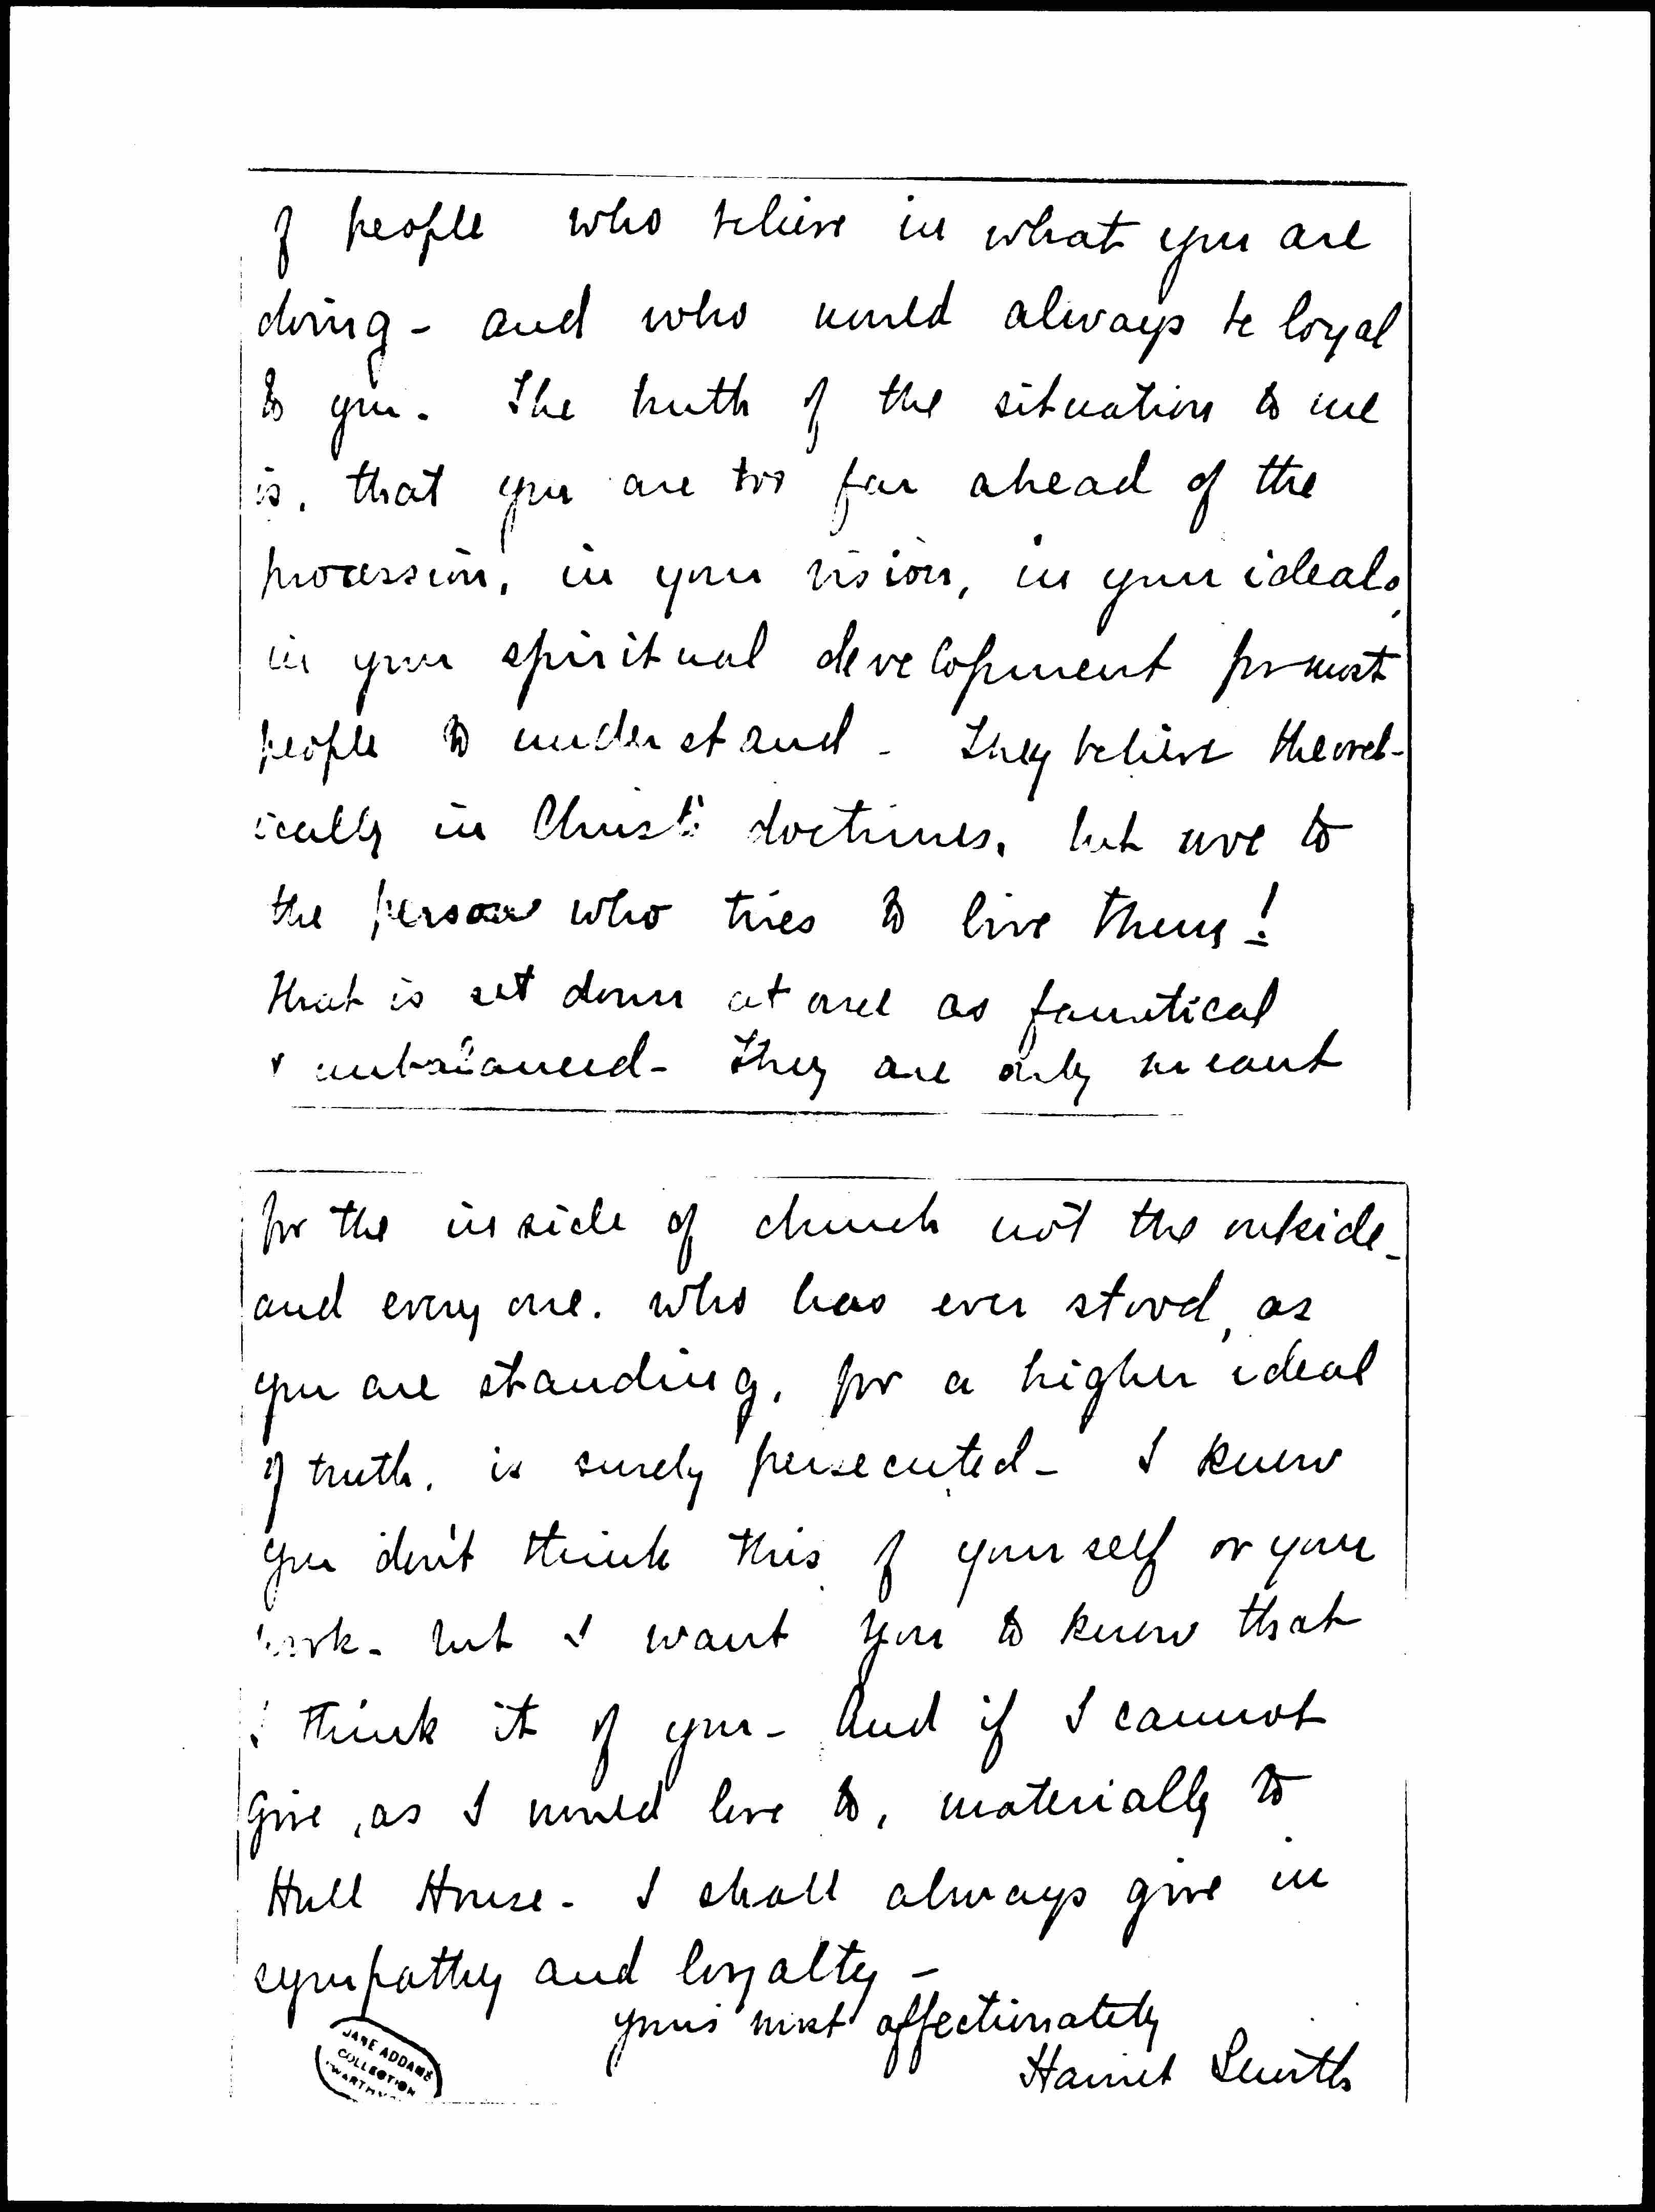 of people who believe in what you are
doing - and who would always be loyal
to you. The truth of the situation to me
is, that you are too far ahead of the
procession, in your vision, in your ideals,
in your spiritual development for most
people to understand - They believe theoret-
ically in Christ's doctrines, but woe to
the person who tries to live them!
that is set down at once as fanatical
& unbalanced - They are only meant
for the inside of church not the outside -
and every one. who has ever stood, as
you are standing, for a higher ideal
of truth, is surely persecuted - I know
you don't think this of yourself or your
work - but I want you to know that
I think it of you - And if I cannot
give, as I would love to, materially to
Hull House - I shall always give in
sympathy and loyalty -
yours most affectionately
Harriet Smith
JANE ADDAMS
COLLECTION